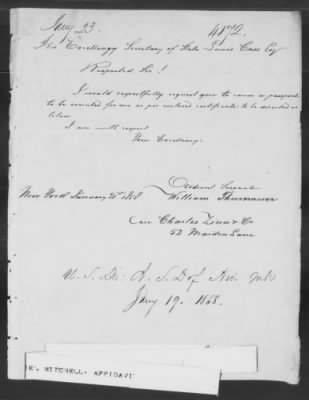 Jany 23. 4172.
His Excellency Secretary of State Lewis Cass Esq
Respected Sir!
I would respectfully request you to cause a passport
to be executed for me as per enclosed certificate to be directed as
below.
I am with respect
Your Excellency
Obedient Servant
New York January 20th 1858 William Thurnauer
Care Charles Zinn & Co
52 Maiden Lane
U. S. D. of
Jany 19. 1858.
MITCHELL- AFFIDAVI